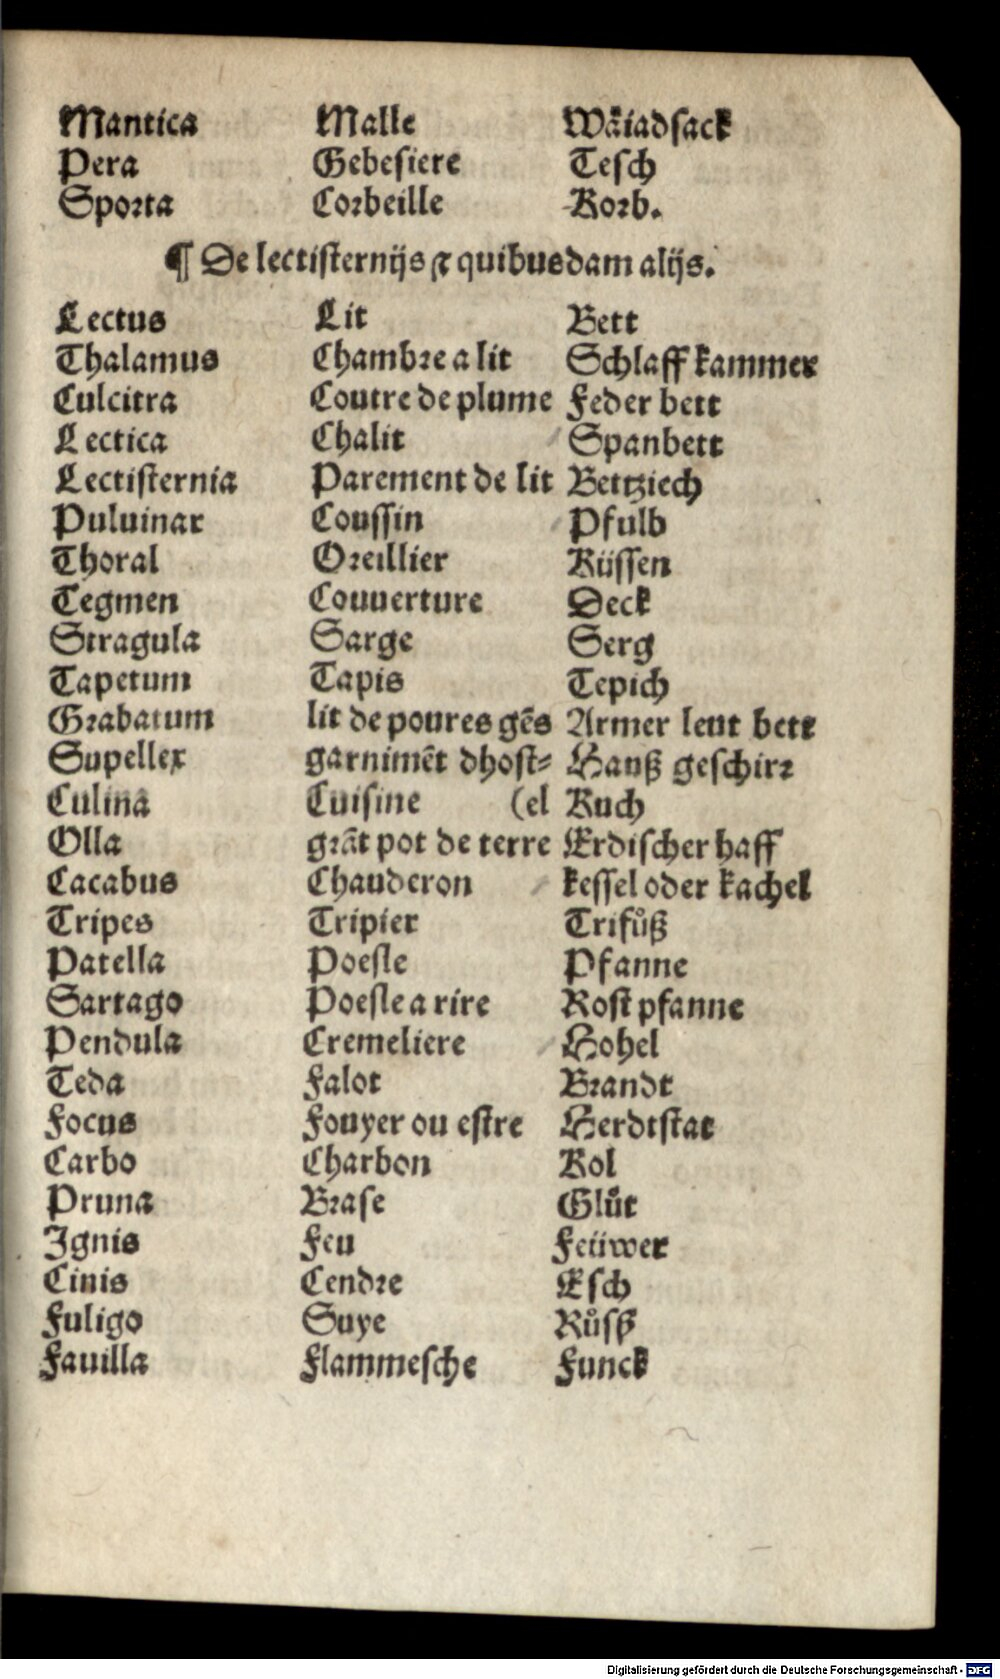 Mantica Malle Wäiadsack
Pera Gebesiere Tesch
Sporta Corbeille Korb.
¶ De lectisternijs ⁊ quibusdam alijs.
Lectus Lit Bett
Thalamus Chambre a lit Schlaff kammer
Culcitra Coutre de plume Feder bett
Lectica Chalit Spanbett
Lectisternia Parement de lit Bettziech
Puluinar Coussin Pfulb
Thoral Oreillier Küssen
Tegmen Couuerture Deck
Stragula Sarge Serg
Tapetum Tapis Tepich
Grabatum lit de poures gẽs Armer leut bett
Supellex garnimẽt dhost⸗ Hauß geschirr
Culina Cuisine (el Kuch
Olla grãt pot de terre Erdischer haff
Cacabus Chauderon kessel oder kachel
Tripes Tripier Trifůß
Patella Poesle Pfanne
Sartago Poesle a rire Rost pfanne
Pendula Cremeliere Hohel
Teda Falot Brandt
Focus Fouyer ou estre Herdtstat
Carbo Charbon Kol
Pruna Brase Glůt
Ignis Feu Feüwer
Cinis Cendre Esch
Fuligo Suye Růsß
Fauilla Flammesche Funck
Digitalisierung gefördert durch die Deutsche Forschungsgemeinschaft - DFG